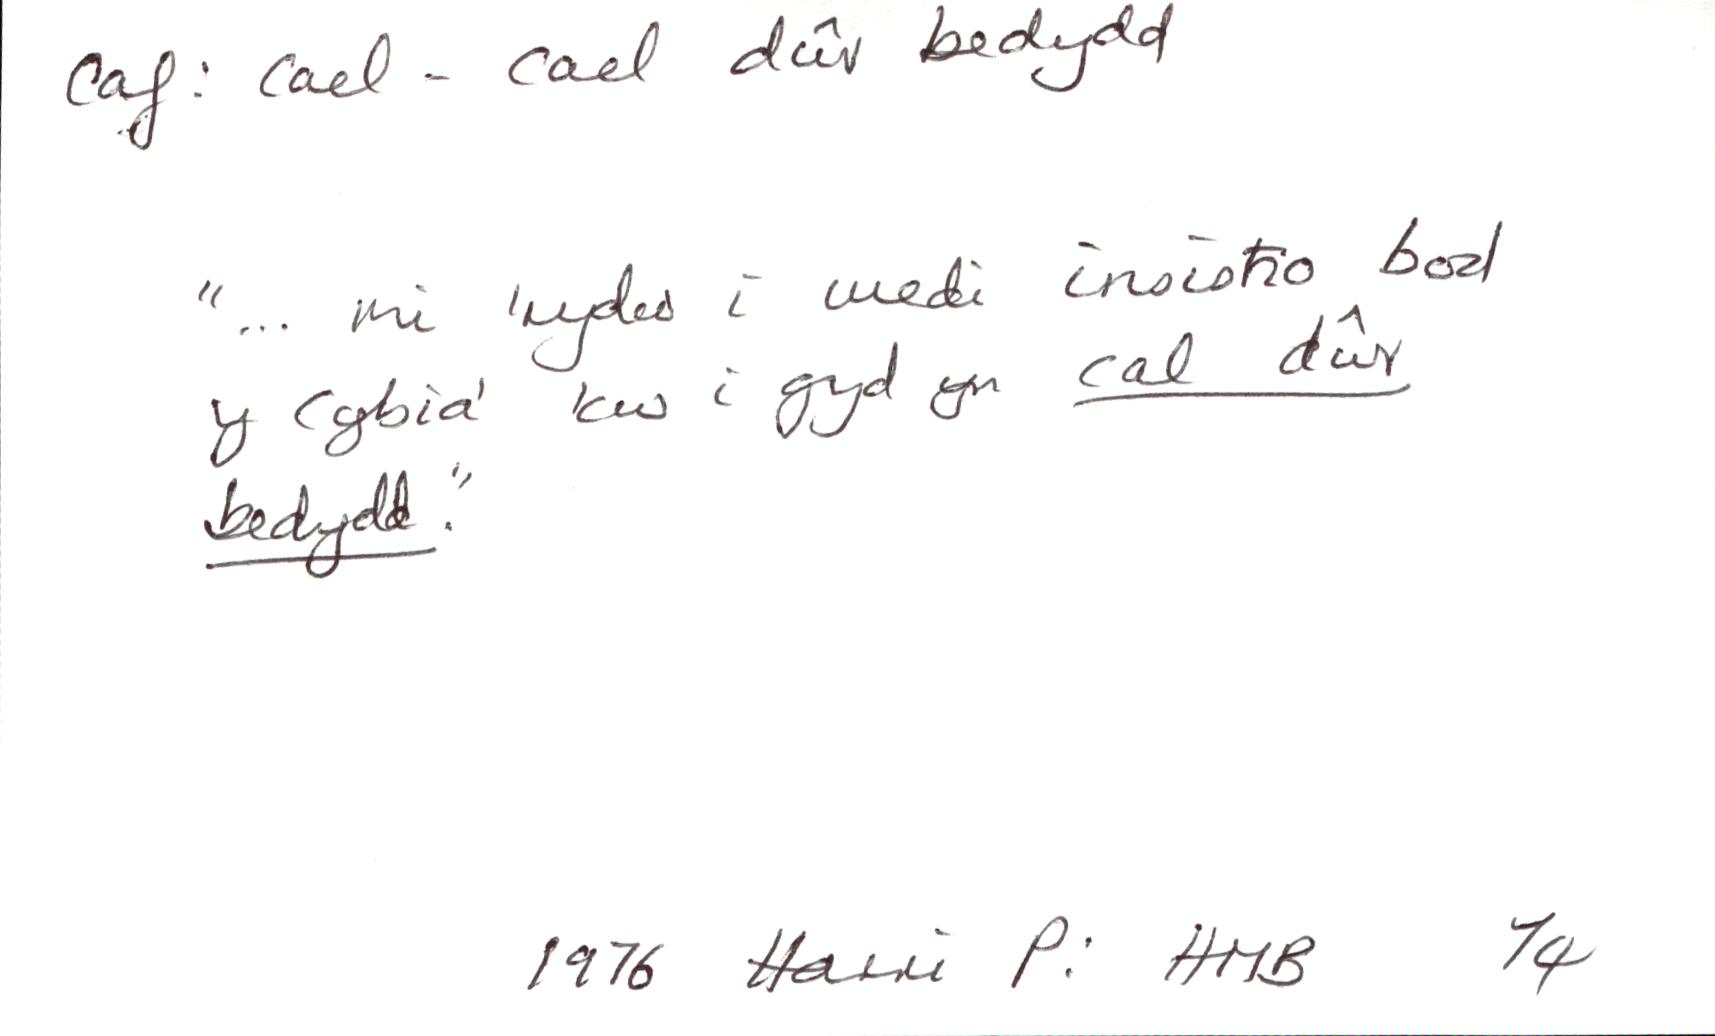 caf: cael - cael dŵr bedydd
"... mi 'rydw i wedi insistio bod
y cybia' 'cw i gyd yn cal dŵr
bedydd."
1976 Harri P: HHB 74